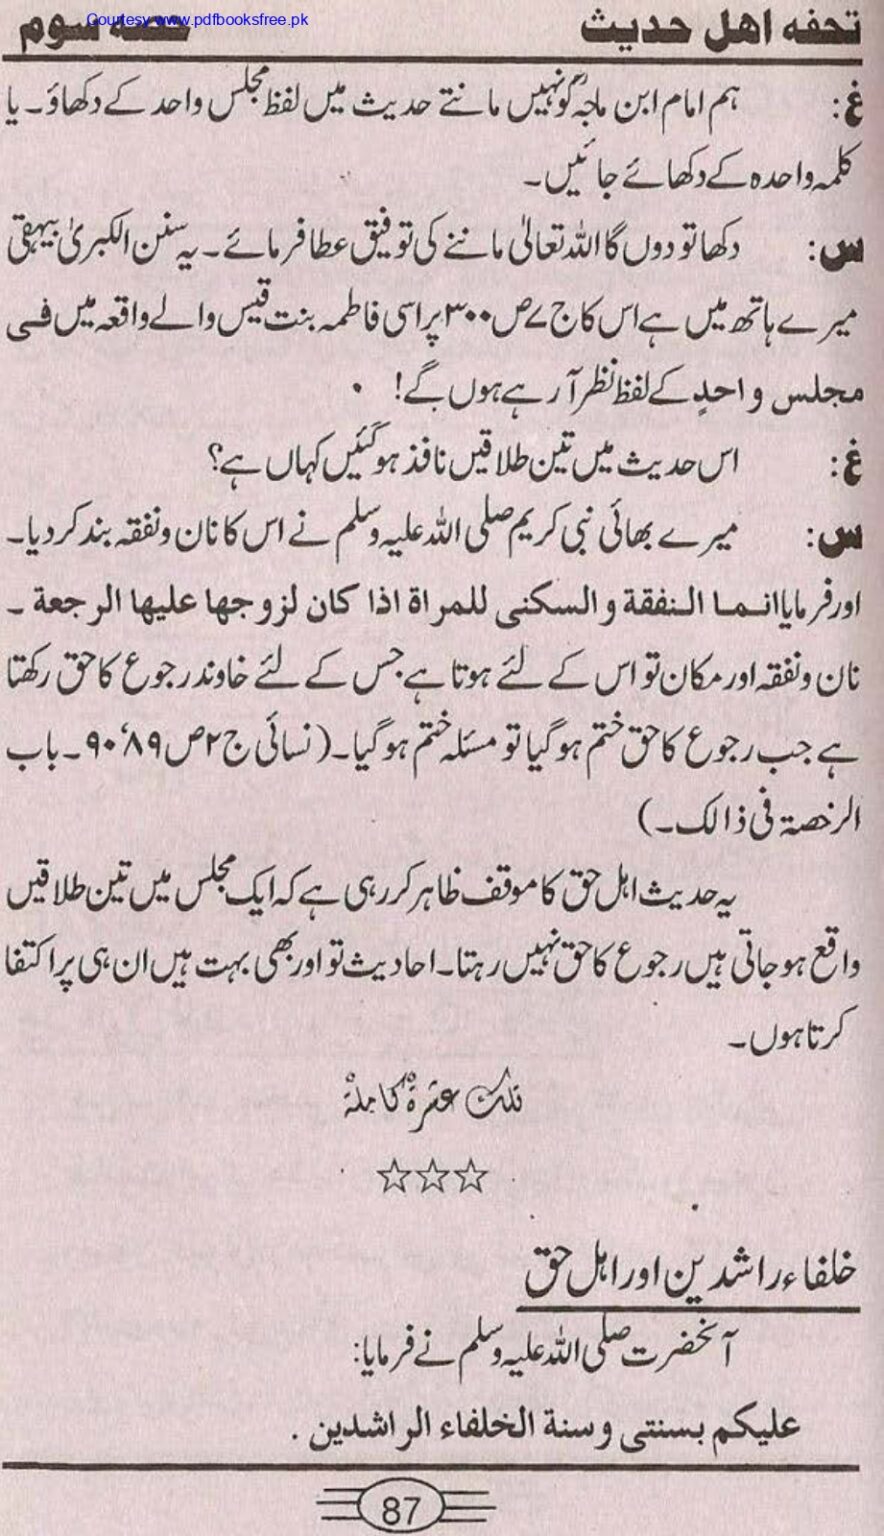 تحفہ اهل حدیث
حصہ سوم
Courtesy www.pdfbooksfree.pk
غ: ہم امام ابن ماجہؒ کو نہیں مانتے حدیث میں لفظ مجلس واحد کے دکھاؤ۔ یا
کلمہ واحدہ کے دکھائے جائیں۔
س: دکھا تو دوں گا اللہ تعالیٰ ماننے کی توفیق عطا فرمائے۔ یہ سنن الکبریٰ بیہقی
میرے ہاتھ میں ہے اس کا ج ۷ ص ۳۰۰ پر اسی فاطمہ بنت قیس والے واقعہ میں فی
مجلس واحدٍ کے لفظ نظر آ رہے ہوں گے!
غ: اس حدیث میں تین طلاقیں نافذ ہوگئیں کہاں ہے؟
س: میرے بھائی نبی کریم صلی اللہ علیہ وسلم نے اس کا نان ونفقہ بند کر دیا۔
اور فرمایا انما النفقة والسکنی للمراة اذا کان لزوجها علیها الرجعة ۔
نان ونفقہ اور مکان تو اس کے لئے ہوتا ہے جس کے لئے خاوند رجوع کا حق رکھتا
ہے جب رجوع کا حق ختم ہو گیا تو مسئلہ ختم ہو گیا۔ (نسائی ج ۲ ص ۸۹، ۹۰۔ باب
الرخصۃ فی ذالک۔)
یہ حدیث اہل حق کا موقف ظاہر کر رہی ہے کہ ایک مجلس میں تین طلاقیں
واقع ہو جاتی ہیں رجوع کا حق نہیں رہتا۔ احادیث تو اور بھی بہت ہیں ان ہی پر اکتفا
کرتا ہوں۔
تلك عشرةٌ كاملةٌ
☆☆☆
خلفاء راشدین اور اہل حق
آنحضرت صلی اللہ علیہ وسلم نے فرمایا:
علیکم بسنتی وسنة الخلفاء الراشدین .
87